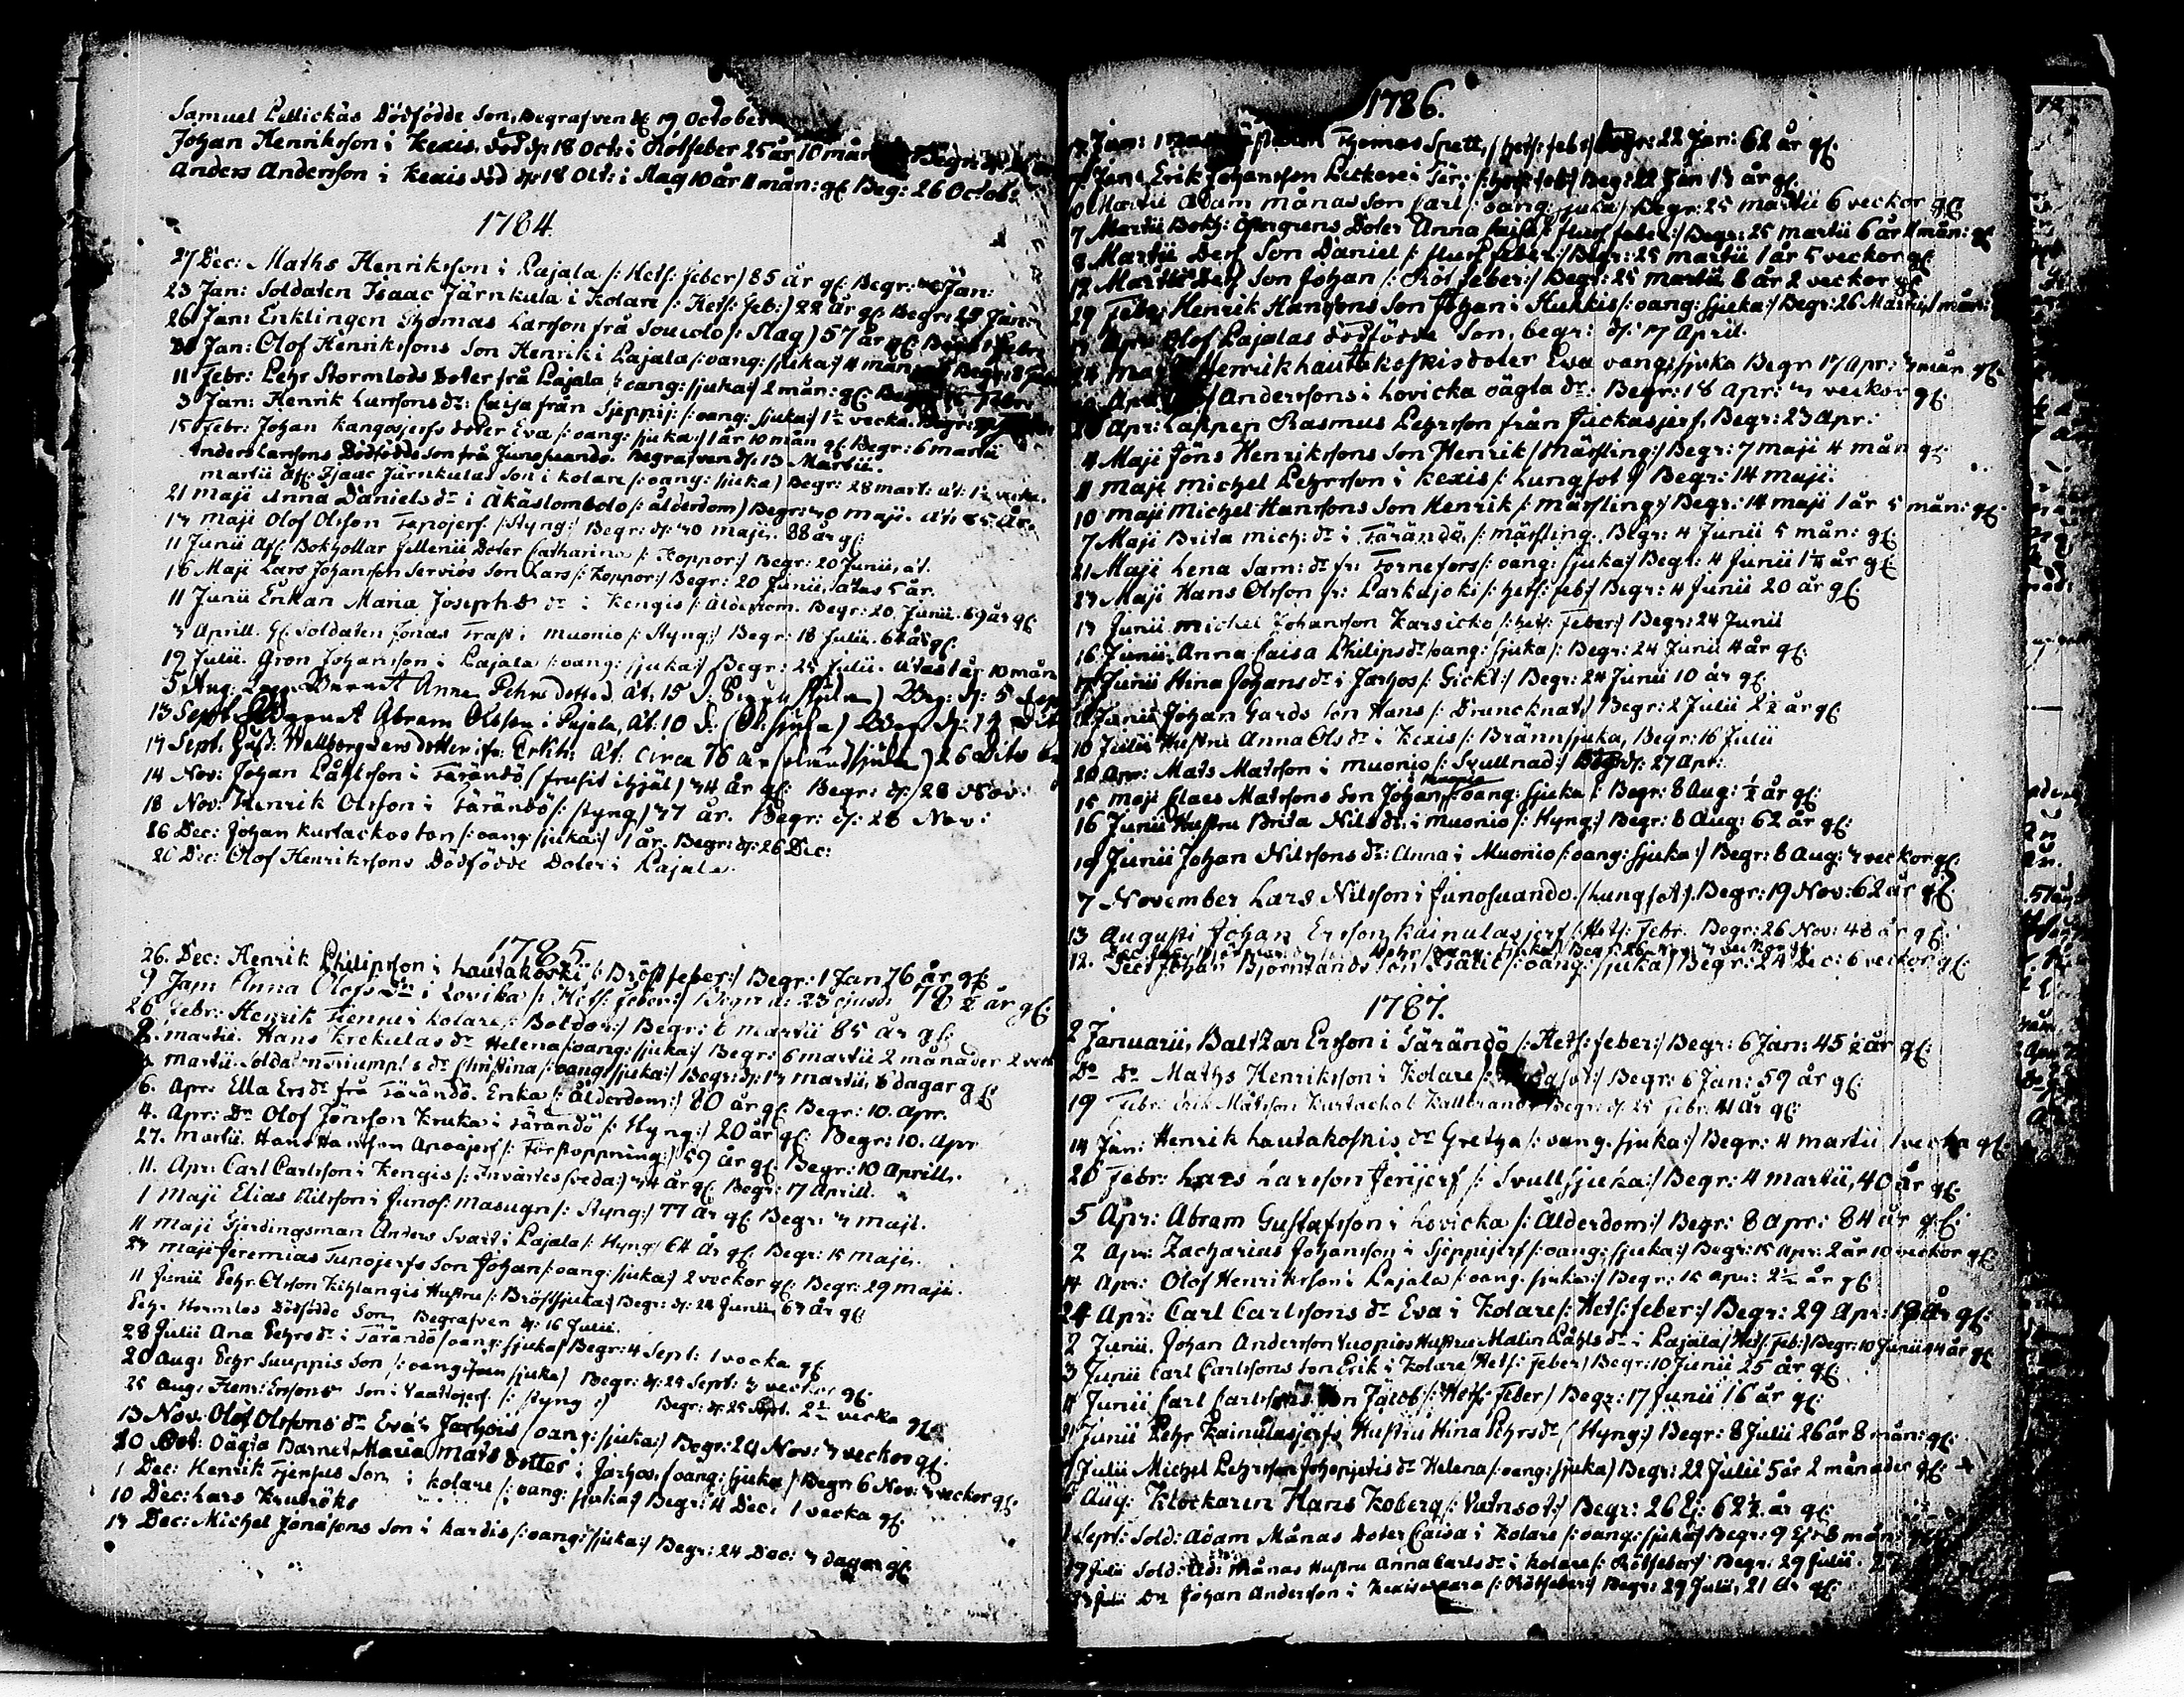 Samuel Pellickas Dödfödde Son, Begrafven d: 19 October
Johan Henriksson i Kexis, död d: 18 Oct: i Rötfeber 25 år 10 mån Begr:
Anders Andersson i Kexis död d: 18 Oct: i Slag 10 år 11 mån: gl: Beg: 26 Octob:
1784.
27 Dec: Maths Henriksson i Pajala /: Hets: feber/ 85 år gl: Begr: Jan:
23 Jan: Soldaten Isaac Järnkula i Kolare /: Hets: feb:/ 22 år gl: Begr: Jan:
26 Jan: Enklingen Thomas Larsson frå Soucolo /: Slag) 57 år gl: Febr
Jan: Olof Henrikssons Son Henrik i Pajala /: oang: sjuka:/ 4 mån Begr: 8
11 Febr: Pehr Stormlods Doter frå Pajala /: oang: sjuka:/ 2 mån: gl: Febr
3 Jan: Henrik Larssons dr: Caisa från Sjeppij: /: oang: sjuka:/ 1½ vecka: Begr:
15 Febr: Johan Kangosjerfs doter Eva /: oang: sjuka:/ 1 år 10 mån gl: Begr: 6 martii
Anders Larssons Dödfödde Son frå Junosuando. Begrafven d: 13 Martii.
martii Afl: Isaac Järnkulas Son i Kolare /: oang: sjuka) Begr: 28 mart: ät: 1½ veck.
21 Maji Anna Daniels dr i Äkäslombolo /: ålderdom) Begr: 30 maji. ät: 85 år.
17 Maji Olof Olsson Tapojerf: /: Styng:/ Begr: d: 30 maji. 88 år gl:
11 Junii Afl: Bokhollar Gellenii Doter Catharina /: Koppor:/ Begr: 20 Junii, ät.
16 Maji Lars Johansson Servios Son Lars /: Koppor:/ Begr: 20 Junii, ätas 5 år.
11 Junii Enkan Maria Josephs dr i Kengis /: Ålderdom. Begr: 20 Junii. 69 år gl:
3 Aprill. Gl: Soldaten Jonas Frast i Muonio /: Styng:/ Begr: 18 Julii. 62 år gl:
19 Julii. Gron Johansson i Pajala /: oang: sjuka:/ Begr: 25 Julii. ätas 1 år 10 mån
5 Aug: Barnet Anna Pehrs dotter ät: 15 Beg: d: 5
13 Sept Barnet Abram Olsson i Pajala, ät: 10 (Ob: sjuka) Beg d: 12
17 Sept. Wallborg dotter ifr: Erkh: ät: circa 76 år 26 dito
14 Nov: Johan Påhlsson i Tärändö (frusit ihjäl) 34 år gl: Begr: d: 28 Nov:
18 Nov: Henrik Olsson i Tärändö /: styng) 37 år. Begr: d: 28 Nov:
26 Dec: Johan Kurtackos son /: oang: sjuka:/ 1 år. Begr: d: 26 Dec:
26 Dec: Olof Henrikssons Dödfödde Doter i Pajala.
1785.
26. Dec: Henrik Philipsson i Lautakoski /: Bröstfeber:/ Begr: 1 Jan 76 år gl:
9 Jan Anna Olofs Dr i Lovika /: Hets: feber:/ Begr d: 23 ejusd: 78 ½ år gl:
26 Febr: Henrik Fienne i Kolare /: Boldor:/ Begr: 6 martii 85 år gl:
2. martii. Hans Krekulas dr Helena /: oang: sjuka:/ Begr: 6 martii 2 månader 2 veck
martii. Soldaten Triumphs dr Christina /: oang: sjuka:/ Begr: d: 13 martii, 8 dagar gl:
6. Apr: Ella Ers dr frå Tärändö. Enka /: ålderdom:/ 80 år gl: Begr: 10. Apr.
4. Apr: Dr Olof Jönsson Kruka i Tärändö /: Styng:/ 20 år gl: Begr: 10. Apr
27. martii. Hans Hansson Apoajerf /: Förstoppning:/ 59 år gl: Begr: 10 Aprill.
11. Apr: Carl Carlsson i Kengis /: Invärtes sveda:/ 34 år gl: Begr: 17 Aprill.
1 Maji Elias Nilsson i Junos: masugn /: Styng:/ 77 år gl: Begr: 3 maji.
11 Maji Fjerdingsman Anders Svart i Pajala /: Styng/ 64 år gl: Begr: 15 maji.
23 maji Jeremias Junojerfs Son Johan /: oang: sjuka:/ 2 veckor gl: Begr: 29 maji.
11 Junii Pehr Olsson Kihlangis Hustru /: Bröstsjuka/ Begr: d: 24 Junii 67 år gl:
Pehr Hermlas Dödfödde Son, Begrafven d: 16 Julii.
28 Julii Ana Pehrs dr i Tärändö /oang: sjuka/ Begr: 4 Sept: 1 vecka gl:
20 Aug: Pehr Suuppis Son /: oang: sjuka) Begr: d: 25 Sept: 3 veckor gl:
25 Aug: Henr: Erssons Son i Vaattojerf /: styng :/ Begr: d: 25 Sept. 2½ vecka gl:
13 Nov: Olof Olssons dr Eva i Jarhois /oang: sjuka:/ Begr: 24 Nov: 3 veckor gl:
30 Oct: Oägta Barnet Maria Mats dotter i Jarhois /oang: sjuka/ Begr: 6 Nov: 3 veckor gl:
1 Dec: Henrik Fjenpes Son i Kolare /: oang: sjuka/ Begr: 4 Dec: 1 vecka gl:
10 Dec: Lars Krutröks
17 Dec: Michel Jonassons Son i Lardis /: oang: sjuka:/ Begr: 24 Dec: 3 dagar gl:
1786.
Jan: Thomas Spett, /hets: feb:/ Begr: 22 Jan: 62 år gl:
Jan: Erik Johansson Leckare i Tär: /: hets: feb:/ Beg: 22 Jan 13 år gl:
Martii Adam månas Son Carl /: oang: sjuka:/ Begr: 25 martii 6 veckor gl:
7 Martii Bokh: Östergrens Doter Anna Caisa /: flussfeber:/ Begr: 25 martii 6 år 11 mån: gl
8 Martii Ders Son Daniel /: flussfeber:/ Begr: 25 martii 1 år 5 veckor gl:
12 Martii Ders Son Johan /: Rötfeber:/ Begr: 25 martii 8 år 2 veckor gl:
29 Febr: Henrik Hanssons Son Johan i Hukkis /: oang: sjuka:/ Begr: 26 Martii, 1 mån:
Apr: Olof Pajalas dödfödde Son, begr: d: 17 April.
Henrik Lautakoskis doter Eva oang: sjuka Begr 17 Apr: 3 mån gl:
Apr: Anderssons i Lovicka oägta dr: Begr: 18 Apr: 3 veckor gl:
20 Apr: Lappen Rasmus Pehrsson från Juckasjerf, Begr: 23 Apr:
4 Maji Jöns Henrikssons Son Henrik /mässling:/ Begr: 7 maji 4 mån gl:
11 Maji Michel Pehrsson i Kexis /: Lungsot:/ Begr: 14 maji:
10 maji Michel Hanssons Son Henrik /: mässling:/ Begr: 14 maji 1 år 5 mån: gl:
7 Maji Brita Mich: dr i Tärändö, /: mässling. Begr: 4 Junii 5 mån: gl:
21 Maji Lena Sam: dr fr: Tornefors /: oang: sjuka:/ Begr: 4 Junii 1½ år gl:
27 Maji Hans Olsson fr: Parkajoki /: hets: feb:/ Begr: 4 Junii 20 år gl:
13 Junii Michel Johansson Karsicko /: hets: feber:/ Begr: 24 Junii
16 Junii Anna Caisa Philips dr /oang: sjuka/: Begr: 24 Junii 4 år gl:
Junii Hina Johans dr i Jarhos /: Gickt:/ Begr: 24 Junii 10 år gl:
Junii Johan Gards Son Hans /: Druncknat:/ Begr: 2 Julii 2½ år gl:
10 Julii Hustru Anna Ols dr i Kexis /: Brännsjuka, Begr: 16 Julii
20 Apr: Mats Matsson i Muonio /: Svullnad:/ Begr: d: 27 Apr:
15 Maji Claes Matssons Son Johan, i Muonio /: oang: sjuka /: Begr: 8 Aug: ½ år gl:
16 Junii Hustru Brita Nils dr: i Muonio /: Styng:/ Begr: 8 Aug: 62 år gl:
19 Junii Johan Nilssons dr: Anna i Muonio /: oang: sjuka:/ Begr: 8 Aug: 3 veckor gl:
7 November Lars Nilsson i Junosuando /: lungsot:/ Begr: 19 Nov: 62 år gl:
13 Augusti Johan Ersson Kainulasjerf /: Hets: Febr. Begr: 26 Nov: 48 år gl:
/oang: sjuka/ Begr: 26 Nov: 3 veckor gl:
12. Dec: Johan Björnrands Son Isaac /: oang: sjuka/ Begr: 24 Dec: 6 veckor gl:
1787.
2 Januarii, Baltzar Ersson i Tärändö /: Hets: feber:/ Begr: 6 Jan: 45 ½ år gl:
Dr Dr Maths Henriksson i Kolare /: Begr: 6 Jan: 59 år gl:
19 Febr: Erik Matsson Kurtackol Kallbrand, Begr: d: 25 Febr: 41 år gl:
14 Jan: Henrik Lautakoskis dr Gretha /: oang: sjuka:/ Begr: 4 martii 1 vecka gl:
26 Febr: Lars Larsson Jerijerf /: Svullsjuka:/ Begr: 4 martii, 40 år gl:
5 Apr: Abram Gustafsson i Lovicka /: Ålderdom:/ Begr: 8 Apr: 84 år gl:
2 Apr: Zacharius Johansson i Sjeppijerf /: oang: sjuka:/ Begr: 15 Apr: 2 år 10 veckor gl:
14 Apr: Olof Henriksson i Pajala /: oang: sjuka:/ Begr: 15 Apr: 2½ år gl:
24 Apr: Carl Carlssons dr Eva i Kolare /: Hets: feber:/ Begr: 29 Apr: år gl:
2 Junii. Johan Andersson Vuopios Hustru Malin Påhls dr i Pajala /Hets: feb:/ Begr: 10 Junii 44 år gl:
3 Junii Carl Carlssons Son Erik i Kolare /Hets: feber/ Begr: 10 Junii 25 år gl:
11 Junii Carl Carlssons Son Jacob /: Hets: feber/ Begr: 17 Junii 16 år gl:
Junii Pehr Kainulasjerfs Hustru Hina Pehrs dr (Styng:/ Begr: 8 Julii 26 år 8 mån: gl:
Julii Michel Pehrsson Johopjetis dr Helena /: oang: sjuka) Begr: 22 Julii 5 år 2 månader gl:
Aug: Klockaren Hans Koberg /: Vatnsot:/ Begr: 26 Ej: 62½ år gl:
Sept: Sold: Adam Månas Doter Caisa i Kolare /: oang: sjuka/ Begr: 9 mån:
Julii Sold: Ad: Månas Hustru Anna Carls dr i Kolare /: Rötfeber:/ Begr: 29 Julii.
Julii Dr Johan Andersson i Kexisvaara /: Rötfeber:/ Begr: 29 Julii, 21 år gl: